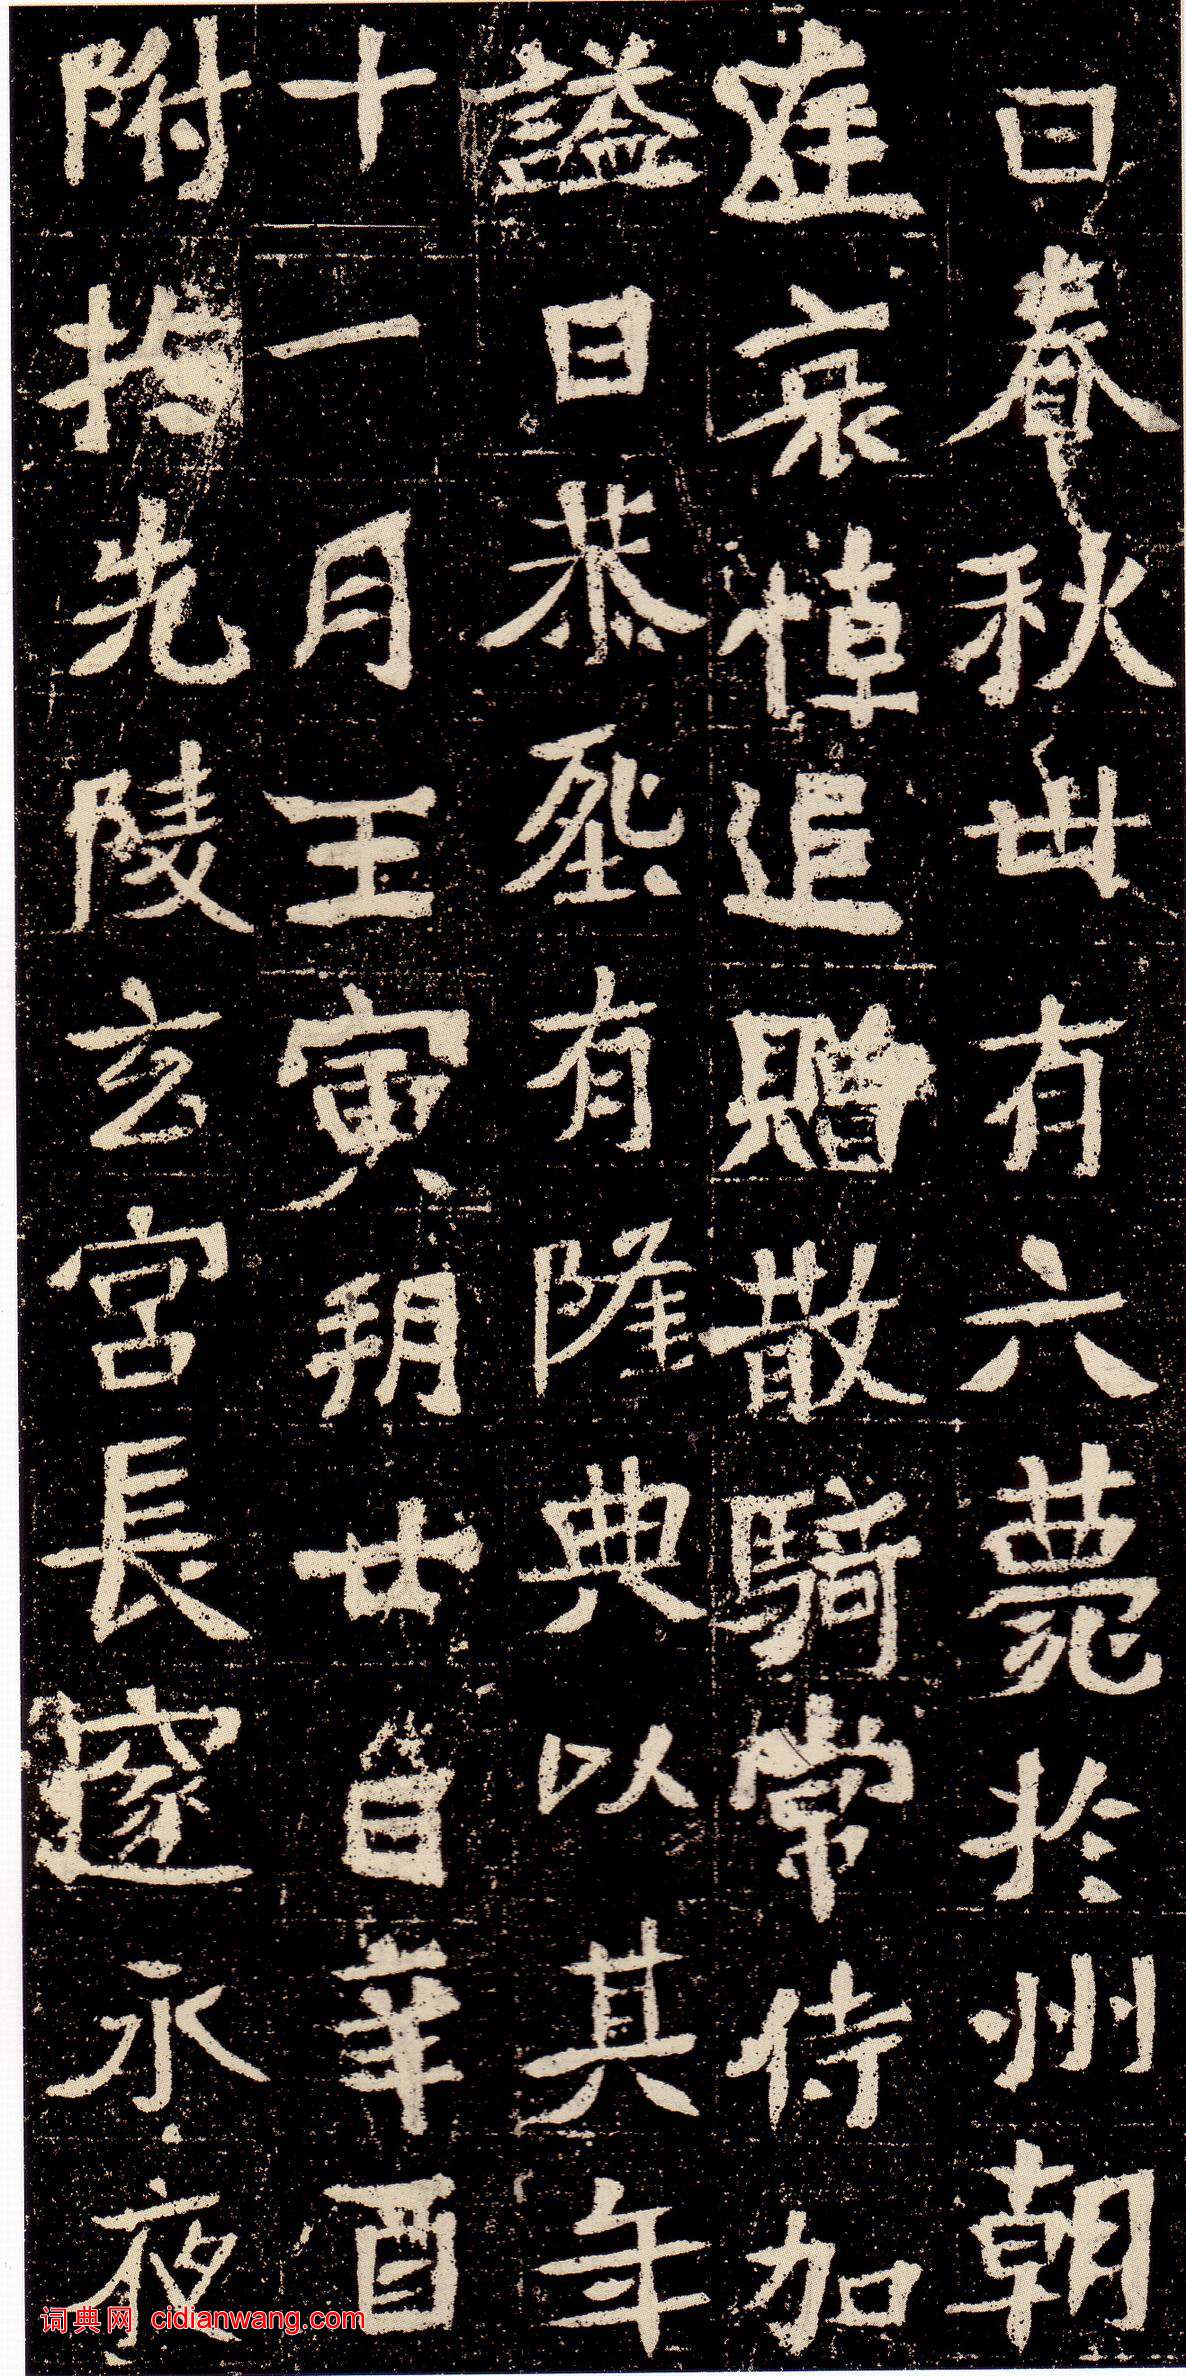 日春秋卌有六薨於州朝
廷哀悼追贈散騎常侍加
謚曰恭熙有隆典以其年
十一月壬寅朔廿日辛酉
附於先陵玄宮長邃永夜
词典网 cidianwang.com